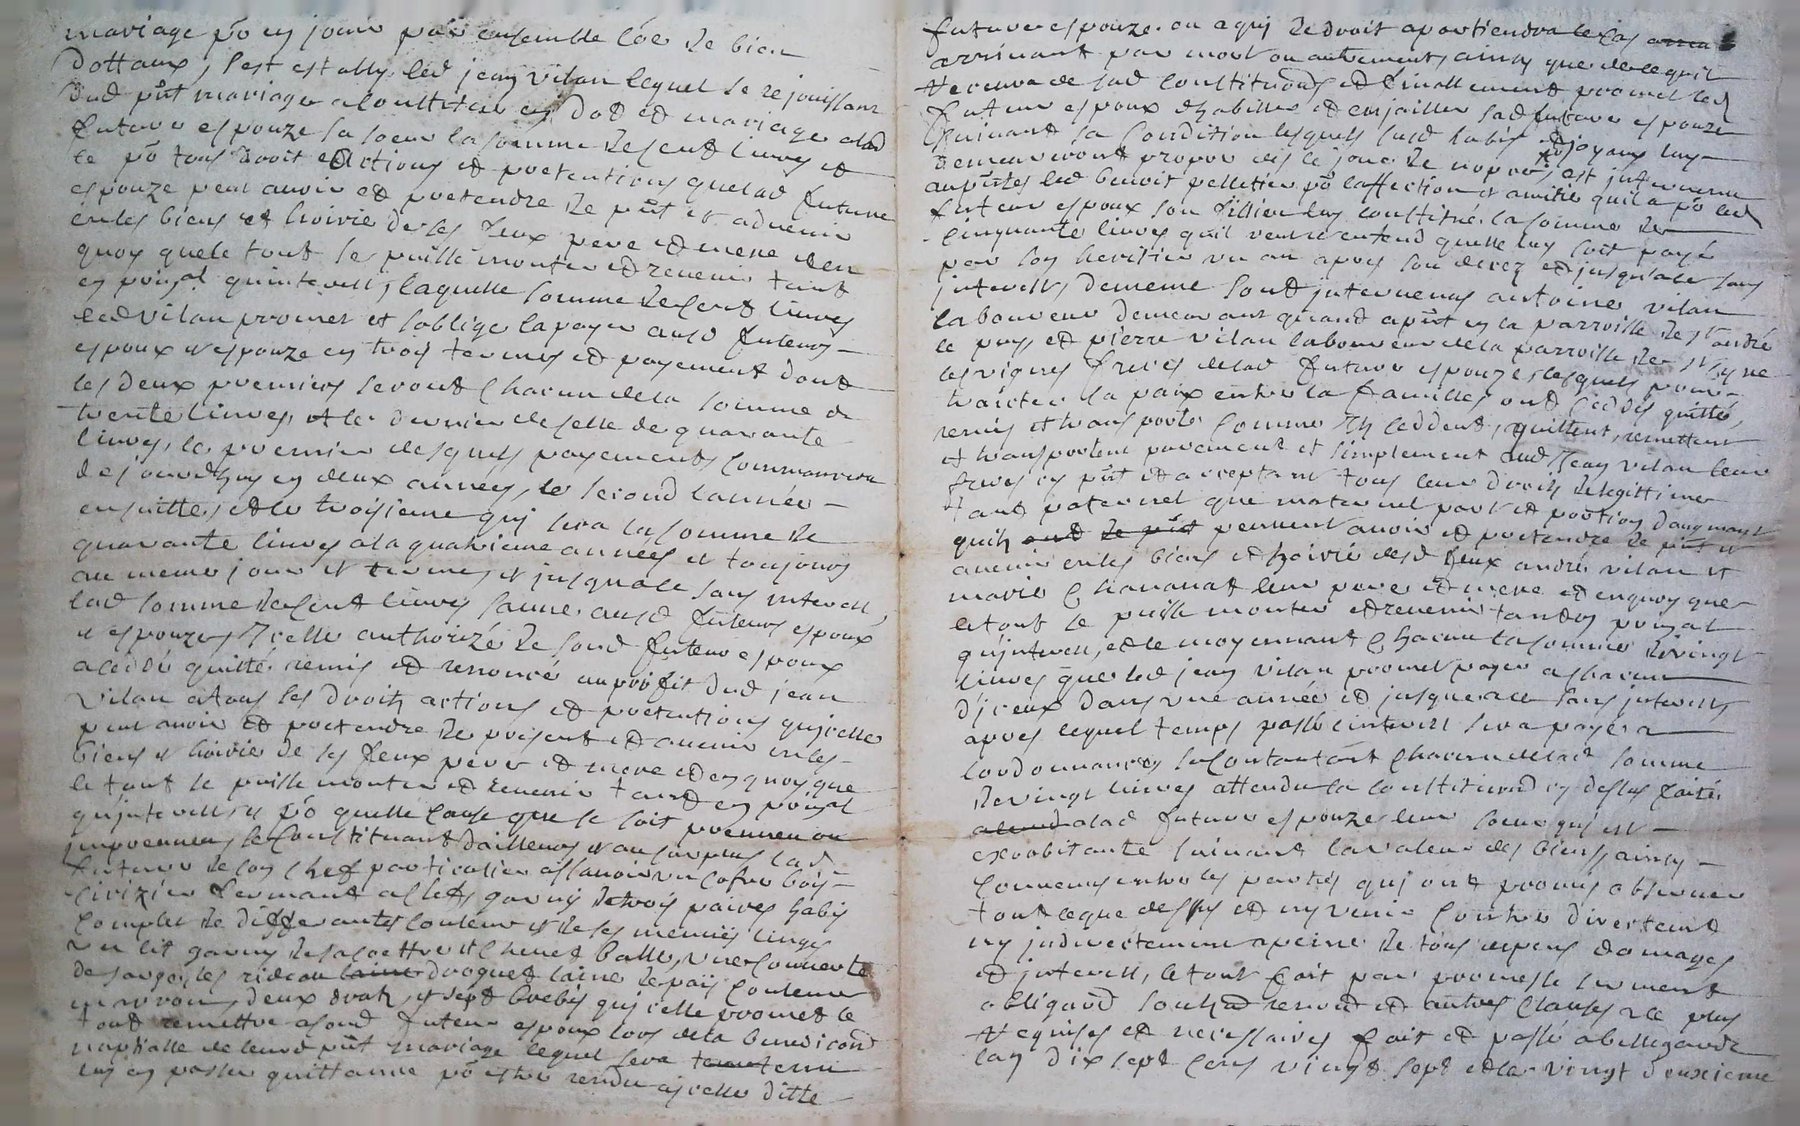 mariage po en jouir par ensemble coe de bien
dottaux, s'est estably led jean vilan lequel se rejouissant
dud pnt mariage a constitue en dot et mariage alad
future espouze sa soeur la somme de cent livres et
ce po tous droit actions et pretentions quelad future
espouze peut avoir et pretendre de pnt et advenir
en les biens et hoirie de ses feux pere et mere et en
quoy que le tout se puisse monter et revenir tant
en pnpal qu'interest, laquelle somme de cent livres
led vilan promet et s'oblige la payer ausd futeurs
espoux et espouze en trois termes et payement dont
les deux premiers seront chacun de la somme de
trente livres, et le dernier de celle de quarante
livres, le premier desquels payements commancera
de jourdhuy en deux années, le second l'année
ensuitte, et le troisieme qui sera la somme de
quarante livres a la quatrieme années et toujours
au meme jour et termes et jusqualce sans interest,
lad somme de cent livres sauve ausd futeurs espoux
et espouze, icelle authorizée de sond futeur espoux
a ceddé quitté remis et renoncé au proffit dud jean
vilan a tous les droits actions et pretentions qu'icelle
peut avoir et pretendre de present et advenir en les
biens et hoirie de ses feux pere et mere et en quoy que
le tout se puisse monter et revenir tant en pnpal
qu'interest, et po quelle cause que ce soit prennen ou
improennen, se constituant d'ailleurs et au surplus lad
future de son chef particulier assavoir un cofre bois
cerizier fermant a clefs garny de trois paires habis
complet de differantes couleur et de ses menues linges
un lit garny de sa coettre et chevet balle, une couverte
de sarge, les rideau laine droguet laine de pais couleur
marron, deux draps, et sept brebis qu'icelle promet le
tout remettre a sond futeur espoux lors de la benediction
nuptialle de leurd pnt mariage lequel sera tenu tenu
luy en passer quittance po estre rendu a icelle ditte
future espouze ou a qui de droit apartiendra le cas
arrivant par mort ou autrement, ainsy que de ce qu'il
recevra de sad constitution, et finallement promet led
futeur espoux d'habiller et enjailler sad future espouze
suivant sa condition lesquels susd habis et joyaux luy
demeureront propre dès le jour de nopces, est intervenu
au pntes led benoit pelletier po l'affection et amitié quil a po led
futeur espoux son fillieu luy constitué la somme de
cinquante livres qu'il veut et entend quelle luy soit payé
par son heritier un an apres son decez et jusqualce sans
interest, de meme sont intervenus antoine vilan
laboureur demeurant quand a pnt en la parroisse de st andré
le puy, et pierre vilan laboureur de la parroisse de st cyr
les vignes freres de lad future espouze, lesquels pour
traicter la paix entre la famille, ont ceddés quitté,
remis et transporté comme ils ceddent, quittent, remettent
et transportent purement et simplement aud jean vilan leur
frere cy pnt et acceptant tous leur droits de legittime
tant paternel que maternel part et portion d'augmant
quils ont de pnt peuvent avoir et pretendre de pnt et
avenir en les biens et hoirie desd feux andré vilan et
marie chananat leur pere et mere et en quoy que
le tout se puisse monter et revenir tant en pnpal
qu'interest, et le moyennant chacun la somme de vingt
livres que led jean vilan promet payer a chacun
d'iceux dans une année et jusqualce sans interests
apres lequel temps passé l'interest sera payé a
l'ordonnance, se contentant chacun de lad somme
de vingt livres attendu la constitution cy dessus faite
alad future espouze leur soeur qui est
exorbitante suivant la valeur des biens, ainsy
convenus entre les parties qui ont promis observer
tout ce que dessus et n'y venir contre directement
ny indirectement a peine de tous depens domages
et interest, le tout fait par promesse serment
obligaon soubm renon et autres clauses a ce plus
requises et necessaires fait et passé a bellegarde
l'an dix sept cens vingt sept et le vingt deuxieme